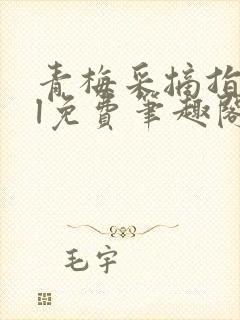 青梅采摘指
l免费笔趣阁
毛宇